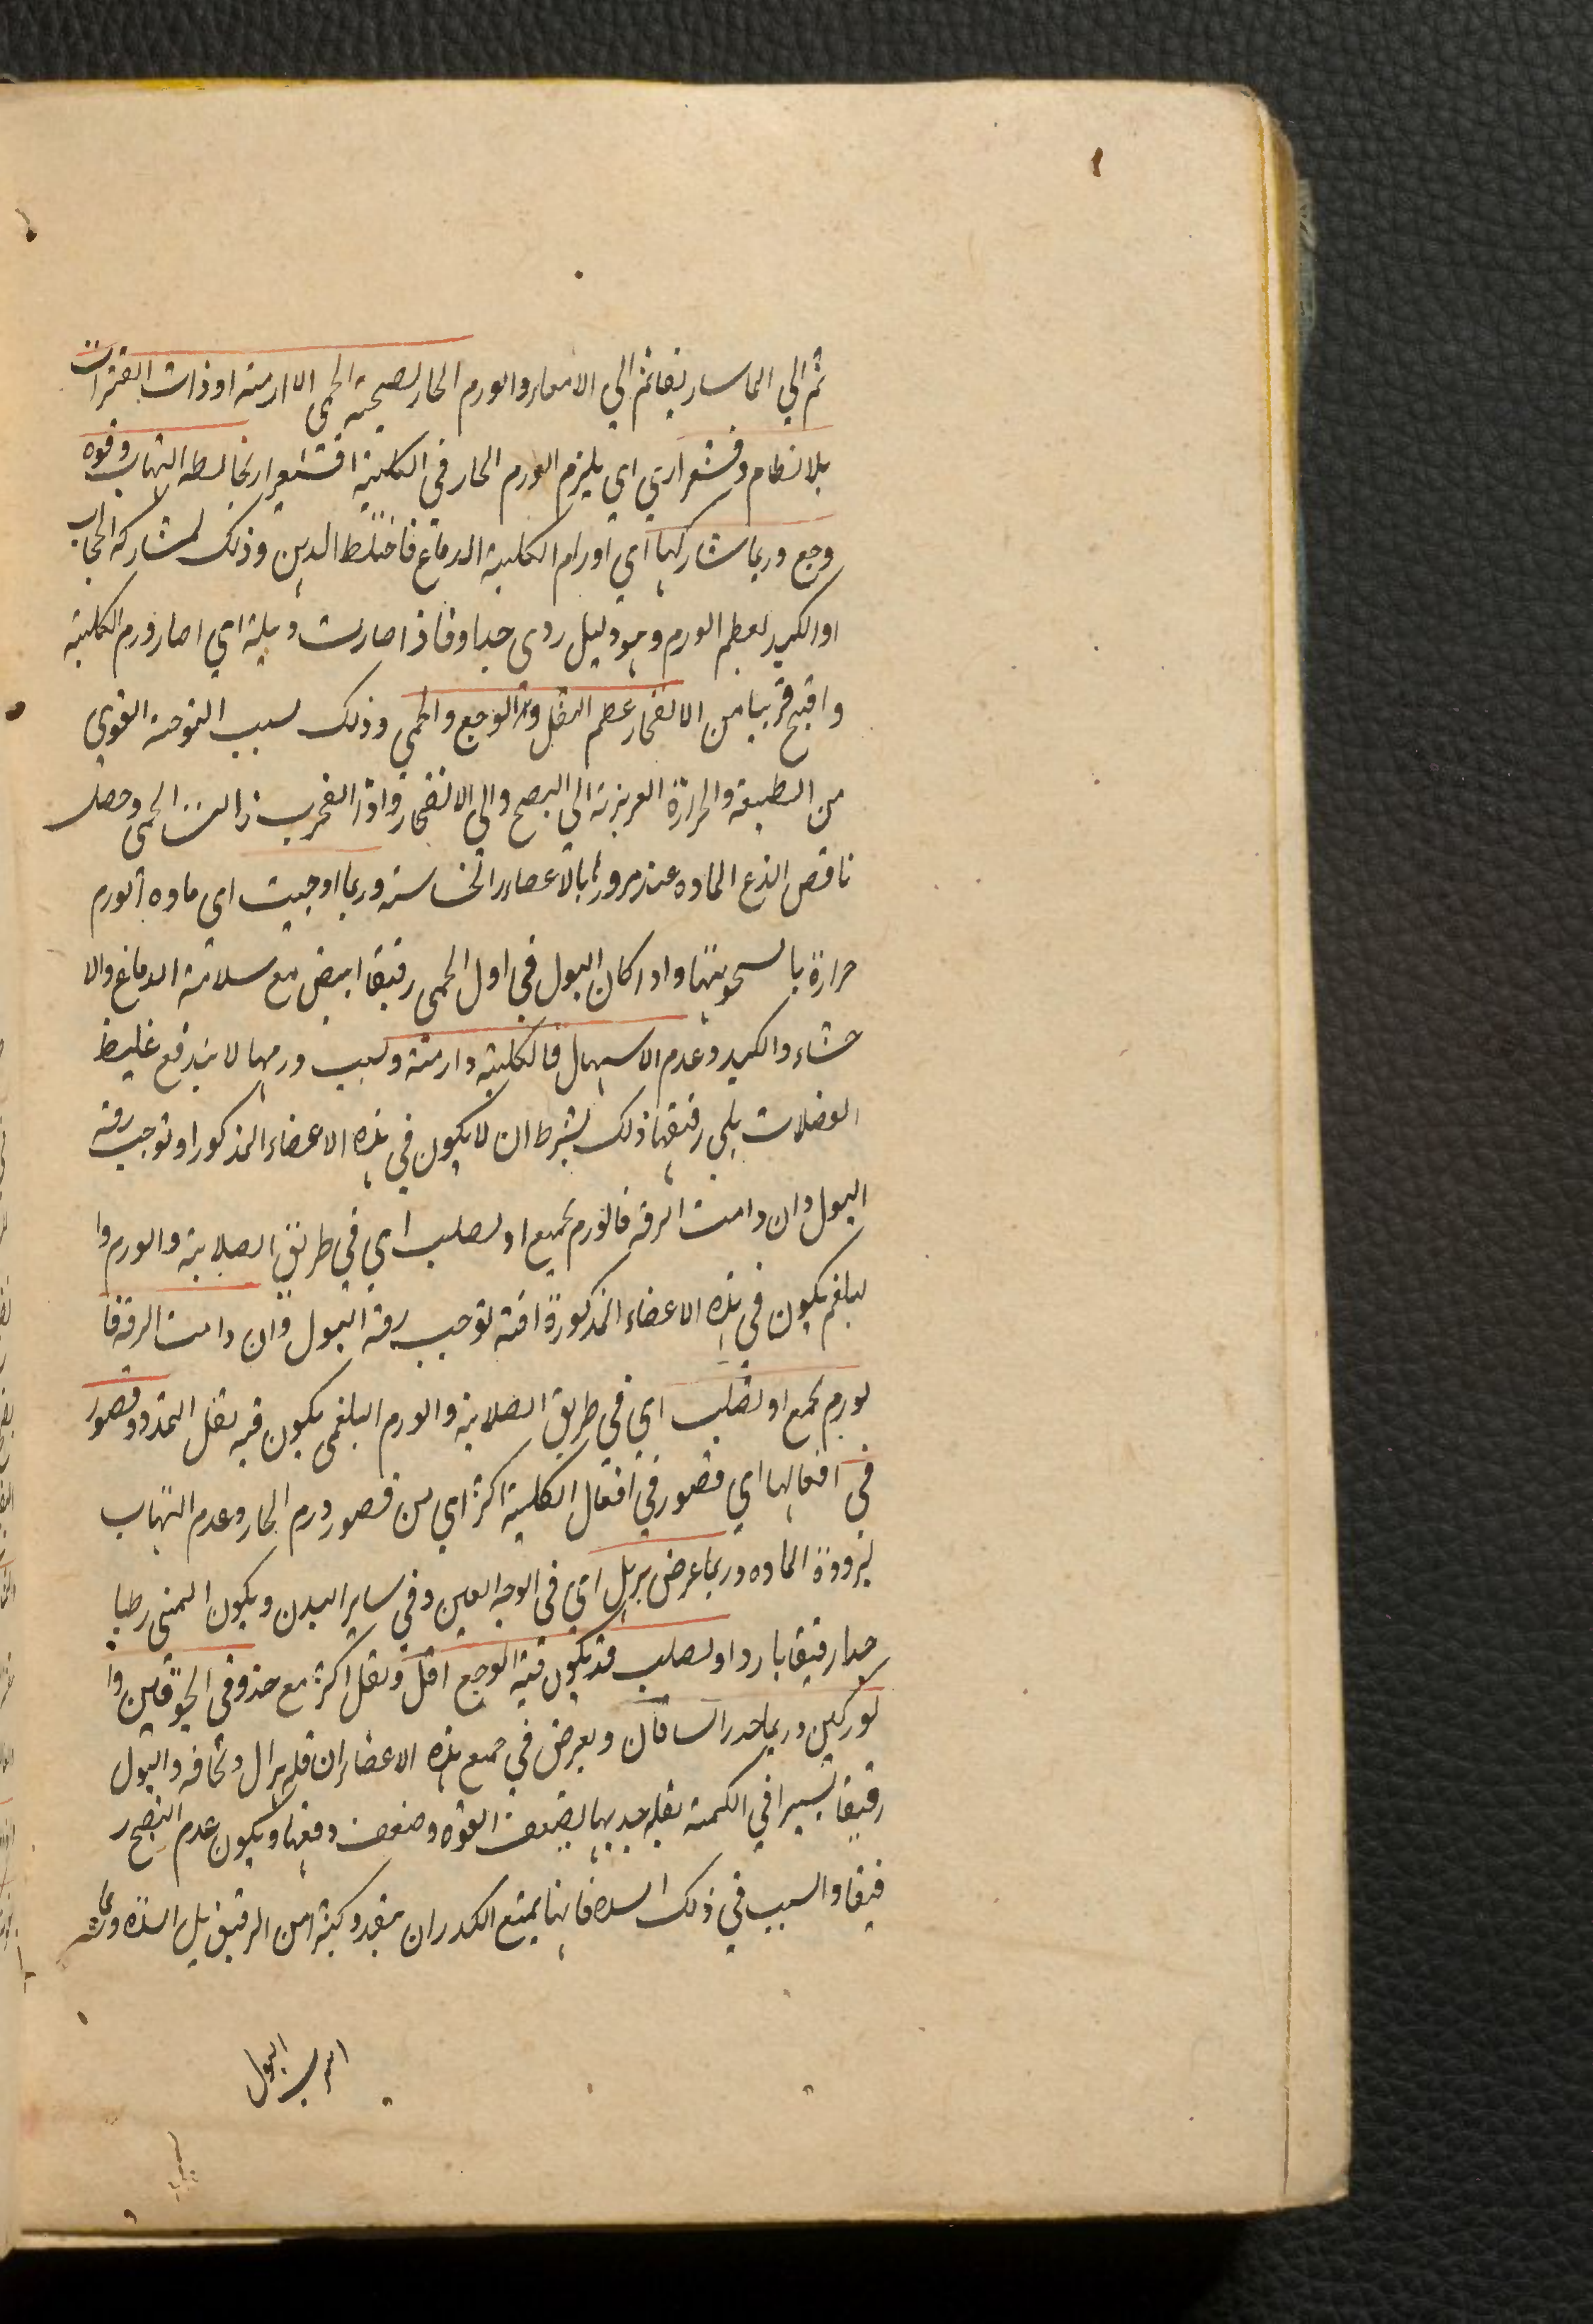 ثم الي الماساريقا ثم الي الامعاء والورم الحار يصحبه الحمى اللازمة او ذات الفترات
بلا نظام وقشعراري اي يلزم الورم الحار في الكلية اقشعرار يخالطه التهاب وقوه
وجع وربما شاركها اي اورام الكلية الدماغ فاختلط الذهن وذلك لمشاركة الحجاب
او الكبد لعظم الورم وهو دليل ردى جدا وفاذا صارت دبيلة اي اصار ورم الكلية
واقبح قريبا من الانفجار عظم الثقل والوجع والحمى وذلك بسبب التوجه القوي
من الطبيعة والحرارة الغريزية الي النضج والي الانفجار واذا انفجرت زالت الحمى وحصل
ناقص الذع الماده عند مرورها بالاعضاء الحساسة وربما اوجبت اي ماده الورم
حرارة بالسحوبتها واذا كان البول في اول الحمى رقيقا ابيض مع سلامة الدماغ والا
حشاء والكبد وعدم الاسهال فالكلية وارمة وبسبب ورمها لا يندفع غليظ
الفضلات بلي رقيقها ذلك بشرط ان لا يكون في هذه الاعضاء المذكور او توجب رقة
البول وان دامت الرقة فالورم يجمع او يصلب اي في طريق الصلابة والورم وا
لبلغم يكون في هذه الاعضاء المذكورة افة توجب رقة البول وان دامت الرقة فا
لورم يجمع او يصلب اي في طريق الصلابة والورم البلغمى يكون فيه ثقل التمدد وقصور
في افعالها اي قصور في افعال الكلية اكثر اي من قصور ورم الحار وعدم التهاب
لبرودة الماده وربما عرض بربل اي في الوجه العين وفي ساير البدن ويكون المنى رطبا
جدا رقيقا باردا ولصلب قد يكون فيه الوجع اقل وثقل اكثر مع خذوفي الحقوين وا
لوركين وربما خدر الساقان ويعرض في جميع هذه الاعضاء ان قله هزال ونحافه والبول
رقيقا يسيرا في الكمية لقلة جذبها لضعف القوه وضعف دفعها ويكون عدم النضج ر
قيقا والسبب في ذلك السده فانها يمنع الكدر ان ينفد وكثيرا من الرقيق بل السده
البول